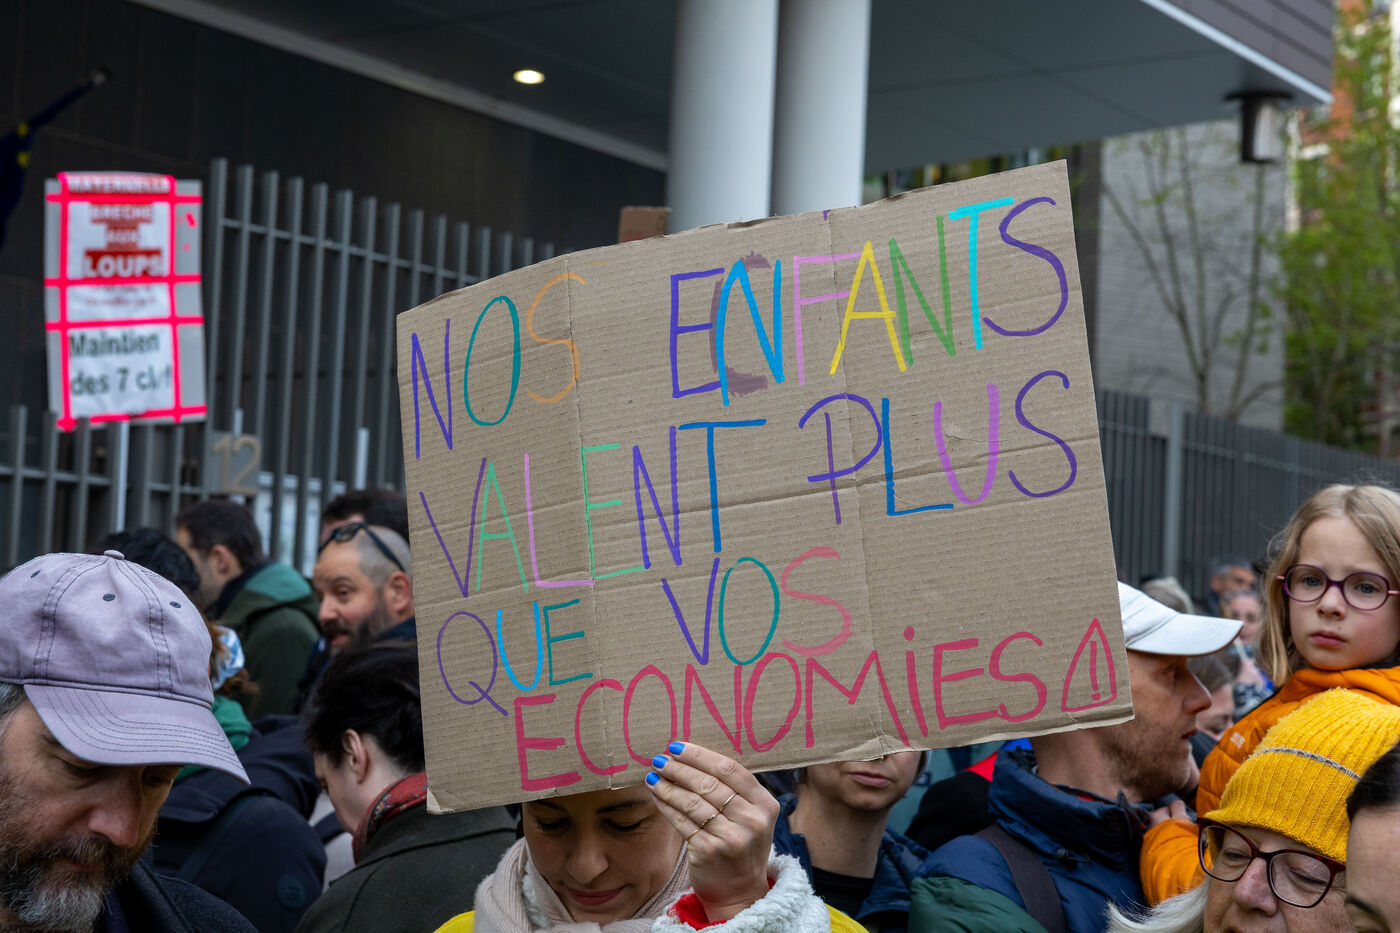 MATERNELLE
BRÈCHE
AUX
LOUPS
Maintien
des 7 cl
12
NOS ENFANTS
VALENT PLUS
QUE VOS
ECONOMIES !